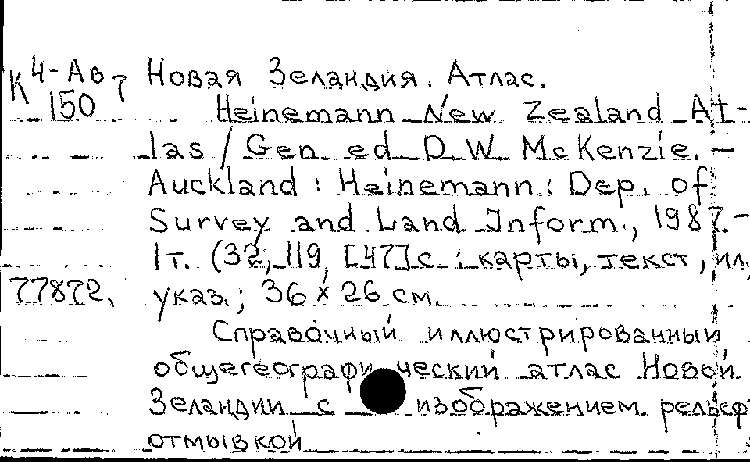 К 4-Ав 7 Новая Зеландия. Атлас.
150 Heinemann New Zealand At-
las / Gen. ed. D.W. McKenzie. –
Auckland : Heinemann : Dep. of
Survey and Land Inform., 1987. –
1т. (32, 119, [47] с. : карты, текст, ил.,
77872. указ.; 36 x 26 см.
Справочный иллюстрированный
общегеографический атлас Новой
Зеландии с изображением рельефа
отмывкой